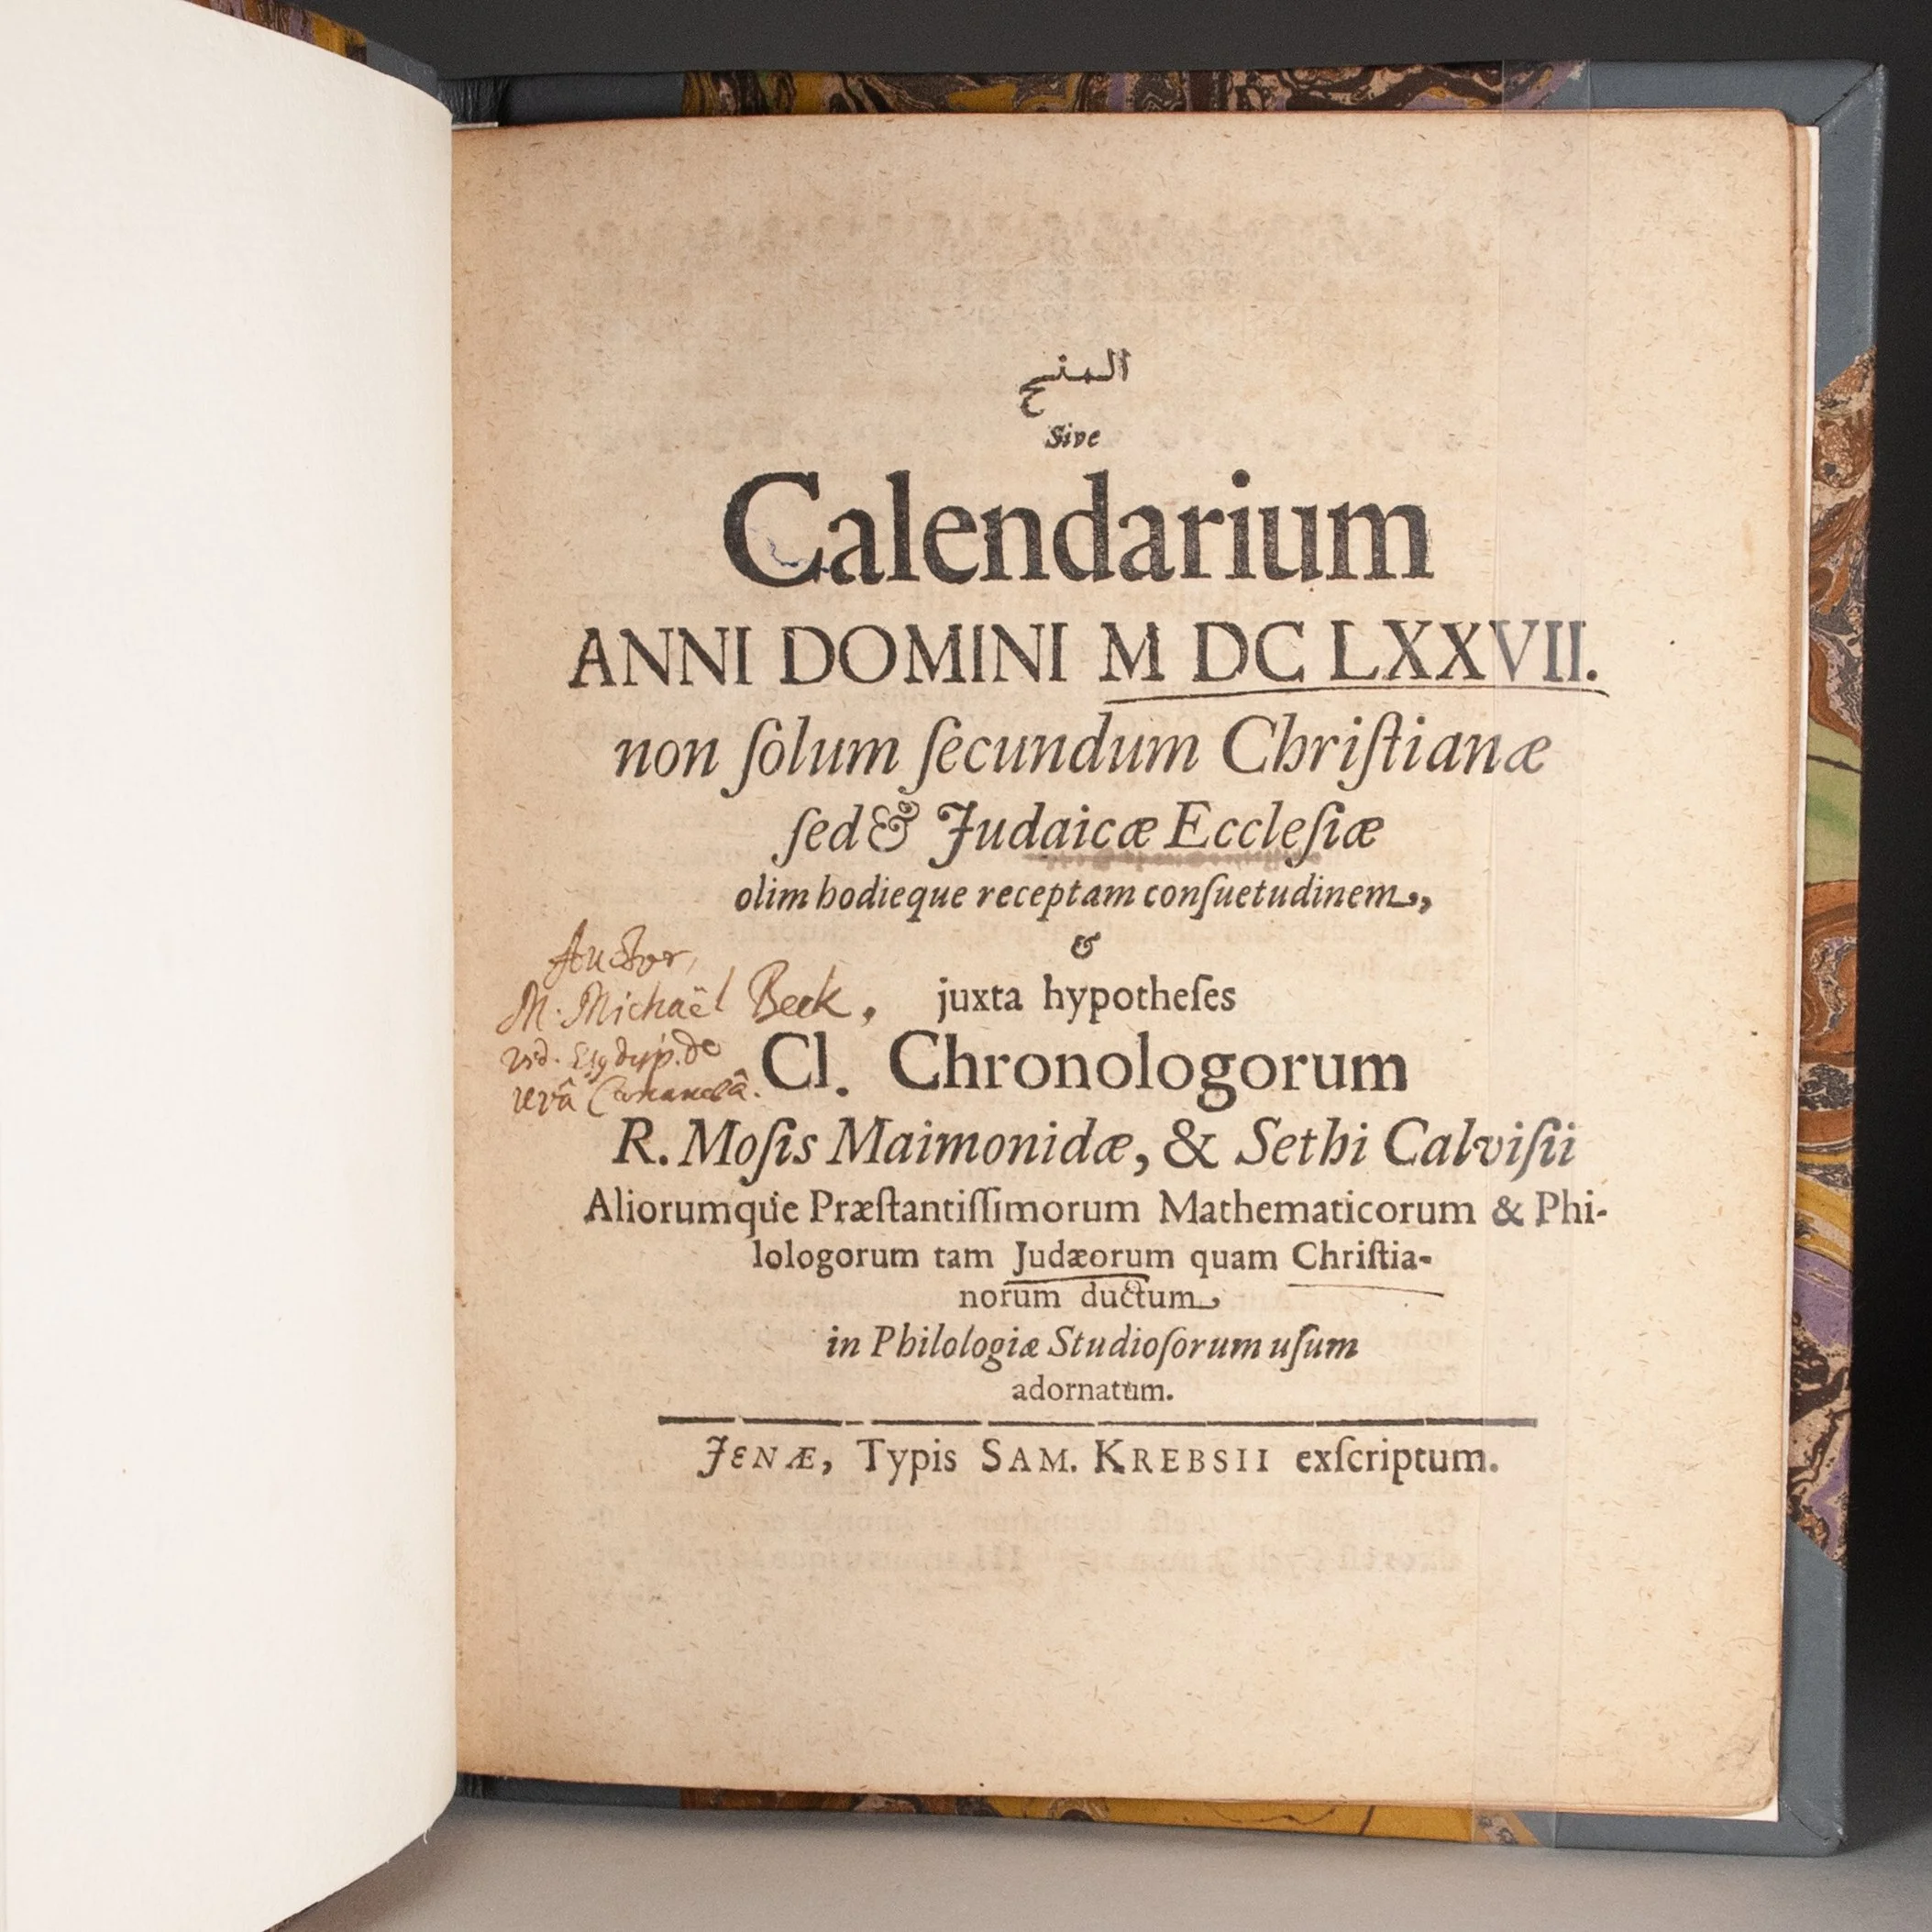 المنح
Sive
Calendarium
ANNI DOMINI M DC LXXVII.
non ſolum ſecundum Chriſtianæ
ſed & Judaicæ Eccleſiæ
olim hodieque receptam conſuetudinem,
&
juxta hypotheſes
Auctor,
M. Michaël Beck,
vid.
Cl. Chronologorum
R. Moſis Maimonidæ, & Sethi Calviſii
Aliorumque Præſtantiſſimorum Mathematicorum & Phi-
lologorum tam Judæorum quam Chriſtia-
norum ductum
in Philologiæ Studioſorum uſum
adornatum.
JENÆ, Typis SAM. KREBSII exſcriptum.